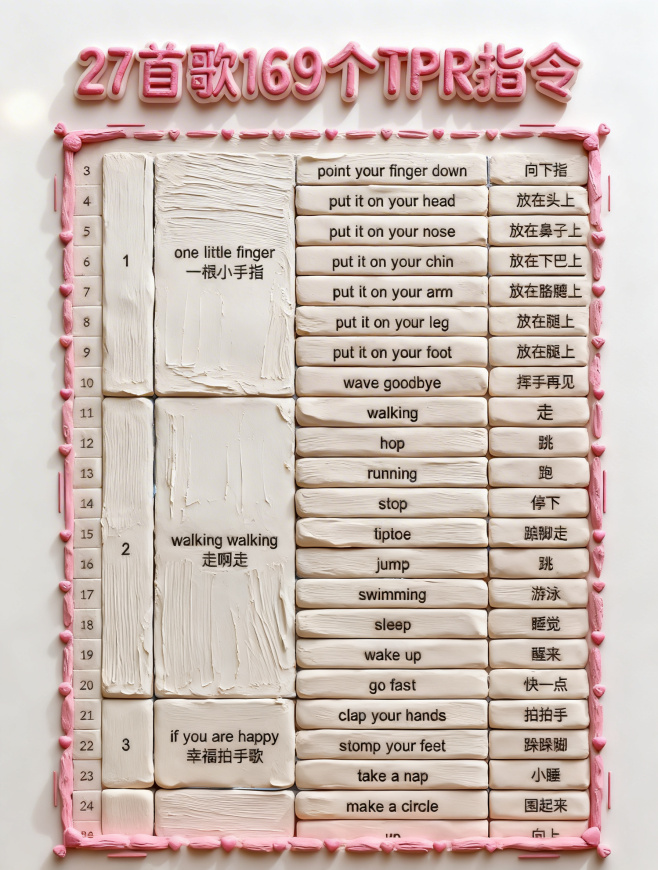 27首歌169个TPR指令
3 point your finger down 向下指
4 put it on your head 放在头上
5 put it on your nose 放在鼻子上
1
one little finger
一根小手指
6 put it on your chin 放在下巴上
7 put it on your arm 放在胳膊上
8 put it on your leg 放在腿上
9 put it on your foot 放在腿上
10 wave goodbye 挥手再见
11 walking 走
12 hop 跳
13 running 跑
14 stop 停下
15 tiptoe 踮脚走
2
walking walking
走啊走
16 jump 跳
17 swimming 游泳
18 sleep 睡觉
19 wake up 醒来
20 go fast 快一点
21 clap your hands 拍拍手
3
if you are happy
幸福拍手歌
22 stomp your feet 跺跺脚
23 take a nap 小睡
24 make a circle 围起来
up 向上